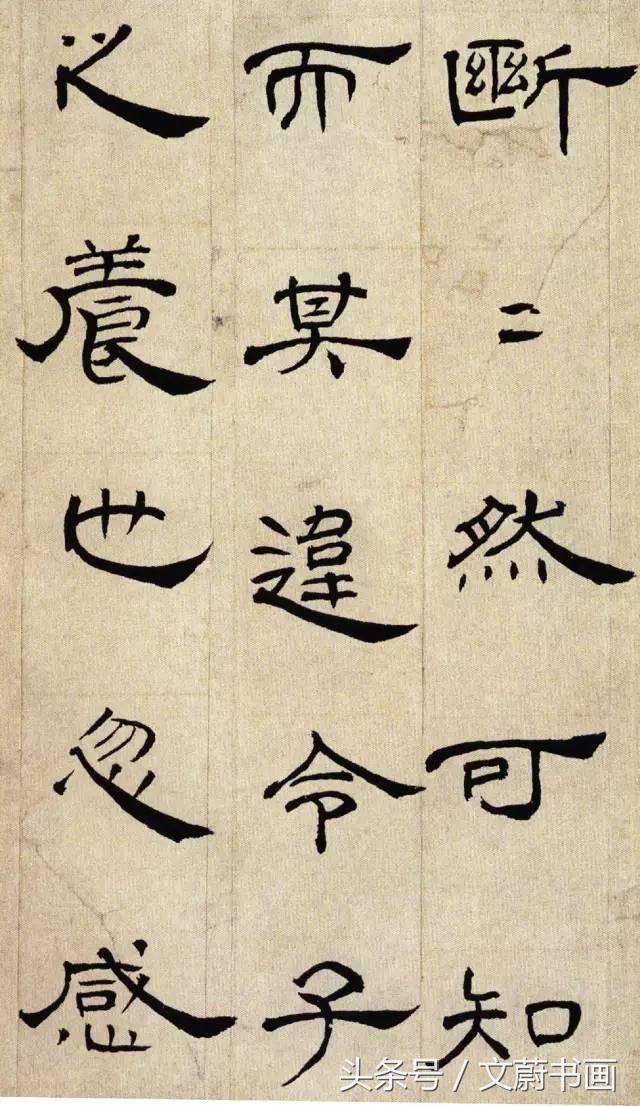 斷〻然可知
而其違令子
之養也忽感
头条号 / 文蔚书画